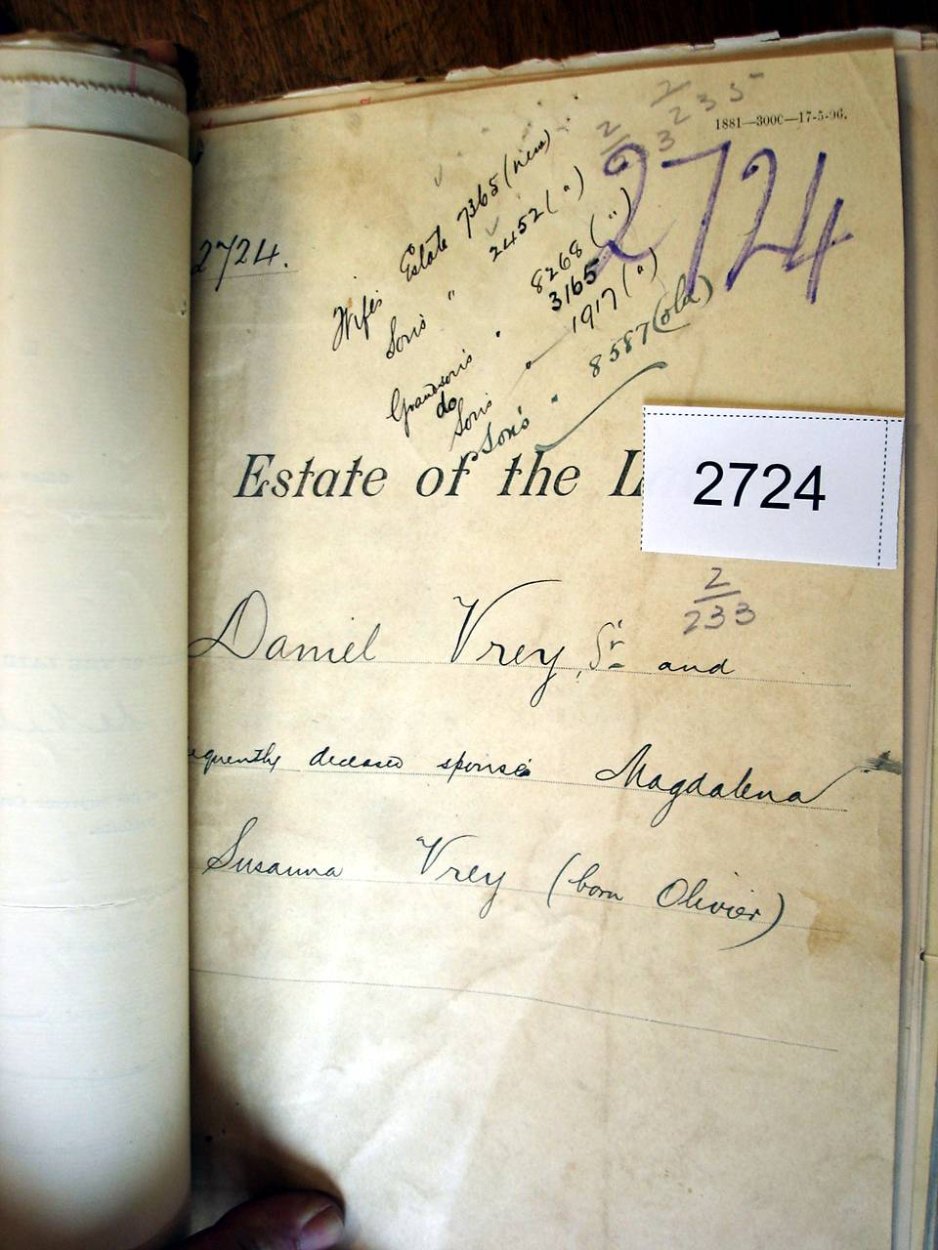 1881—3000—17-5-96.
2
3235
2724
2724.
Wife's Estate 7365 (new)
Son's " 2452 (")
Grandson's " 8268 (")
do 3165
Son's " 1917 (")
Son's " 8587 (old)
Estate of the L
2724
2
233
Daniel Vrey, Sr and
equently deceased spouse Magdalena
Susanna Vrey (born Olivier)